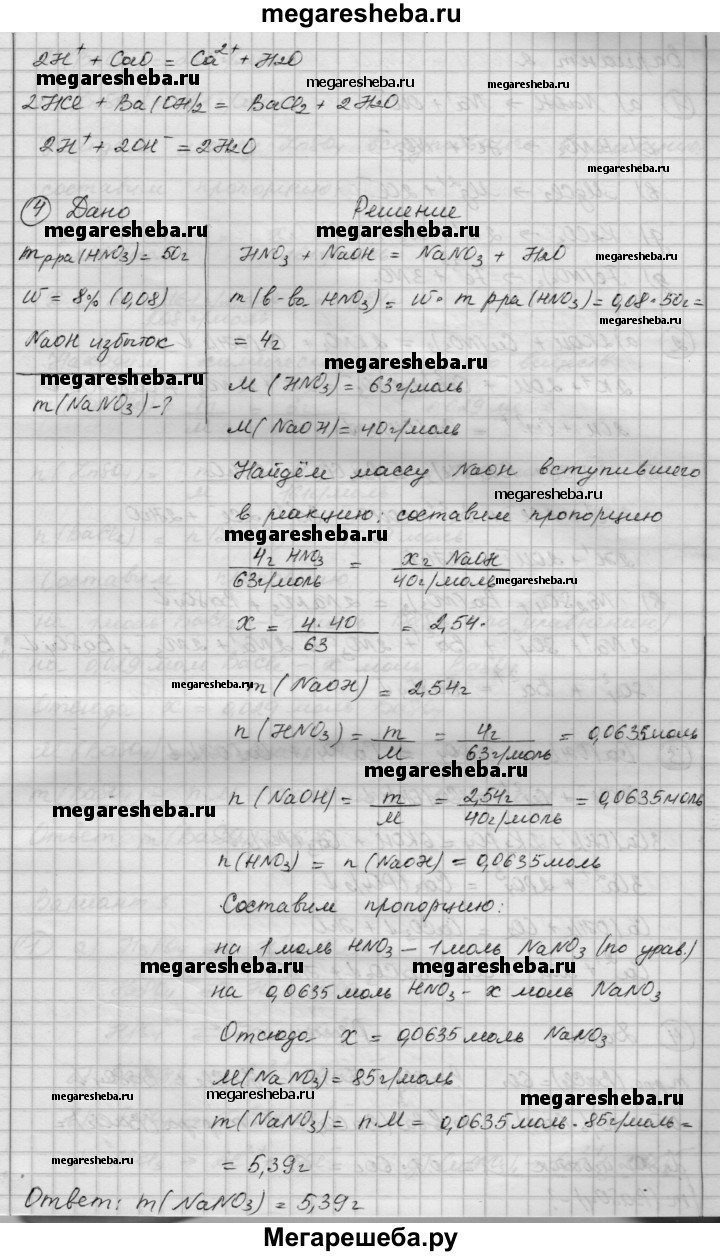 megaresheba.ru
2H⁺ + CaO = Ca²⁺ + H₂O
megaresheba.ru megaresheba.ru megaresheba.ru
2HCl + Ba(OH)₂ = BaCl₂ + 2H₂O
2H⁺ + 2OH⁻ = 2H₂O
megaresheba.ru
④ Дано
megaresheba.ru
mр-ра(HNO₃) = 50г
w = 8% (0,08)
NaOH избыток
megaresheba.ru
m(NaNO₃) - ?
Решение
megaresheba.ru
HNO₃ + NaOH = NaNO₃ + H₂O
megaresheba.ru
m(в-ва HNO₃) = w · m р-ра(HNO₃) = 0,08 · 50г =
megaresheba.ru
= 4г
megaresheba.ru
M(HNO₃) = 63г/моль
M(NaOH) = 40г/моль
Найдём массу NaOH вступившего
megaresheba.ru
в реакцию; составим пропорцию
megaresheba.ru
4г HNO₃ / 63г/моль = xг NaOH / 40г/моль
megaresheba.ru
x = 4·40 / 63 = 2,54.
megaresheba.ru
m(NaOH) = 2,54г
n(HNO₃) = m/M = 4г / 63г/моль = 0,0635моль
megaresheba.ru
n(NaOH) = m/M = 2,54г / 40г/моль = 0,0635моль
megaresheba.ru
n(HNO₃) = n(NaOH) = 0,0635моль
Составим пропорцию:
на 1моль HNO₃ – 1моль NaNO₃ (по урав.)
megaresheba.ru megaresheba.ru
на 0,0635моль HNO₃ - x моль NaNO₃
Отсюда x = 0,0635моль NaNO₃
M(NaNO₃) = 85г/моль
megaresheba.ru megaresheba.ru megaresheba.ru
m(NaNO₃) = n·M = 0,0635моль · 85г/моль =
megaresheba.ru
= 5,39г
Ответ: m(NaNO₃) = 5,39г
Мегарешеба.ру